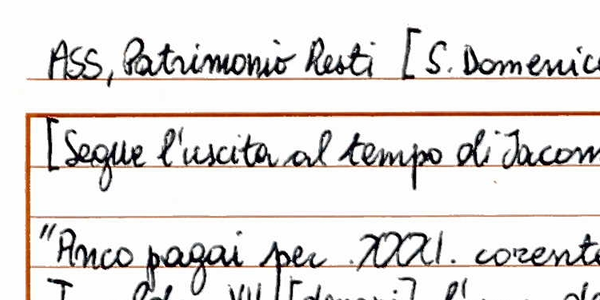 ASS, Patrimonio Resti [S. Domenic
[Segue l'uscita al tempo di Jacom
"Anco pagai per .XXXI. corente
VII [denari] l'